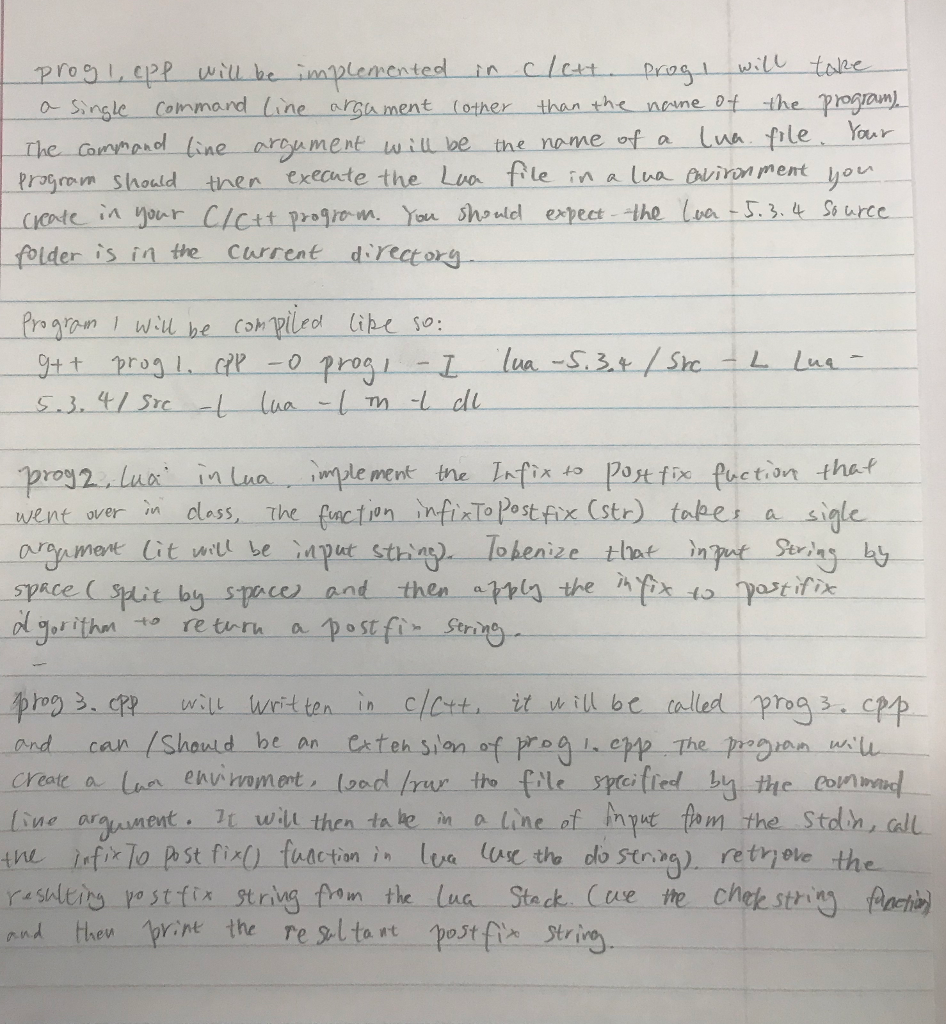 prog1.cpp will be implemented in c/c++. prog1 will take
a single command line argument (other than the name of the program).
The command line argument will be the name of a lua file. Your
program should then execute the Lua file in a lua environment you
create in your C/C++ program. You should expect the lua-5.3.4 source
folder is in the current directory.
Program 1 will be compiled like so:
g++ prog1.cpp -o prog1 -I lua-5.3.4/src -L lua-
5.3.4/src -l lua -l m -l dl
prog2.lua in lua, implement the Infix to postfix fuction that
went over in class, The function infixToPostfix (str) takes a sigle
argument (it will be input string). Tokenize that input string by
space (split by space) and then apply the infix to postifix
algorithm to return a postfix string.
prog3.cpp will written in c/c++, it will be called prog3.cpp
and can/should be an extension of prog1.cpp The program will
create a lua enviroment, load/run the file specified by the command
line argument. It will then take in a line of input from the stdin, call
the infixToPostfix() function in lua (use the dostring), retrieve the
resulting postfix string from the lua Stack (use the chekstring function)
and then print the resultant postfix string.